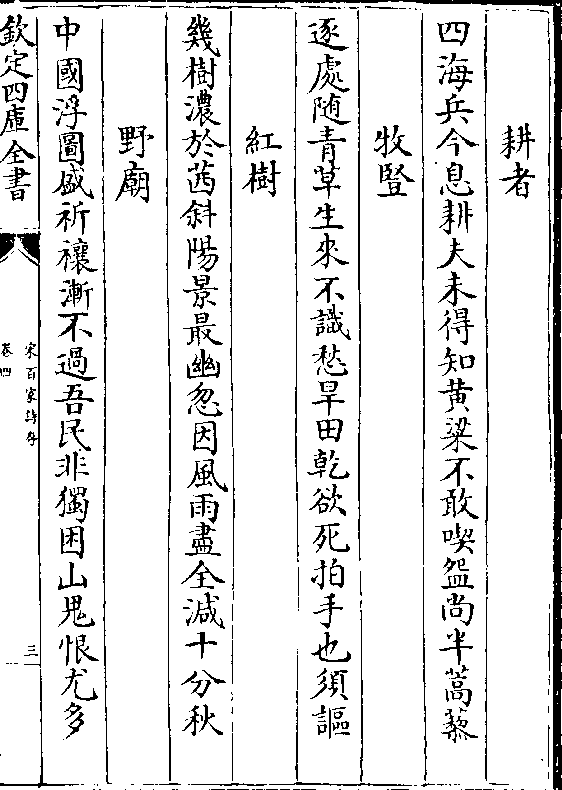 耕者
四海兵今息耕夫未得知黄粱不敢喫盌尚半蒿藜
牧豎
逐處随青草生來不識愁旱田乾欲死拍手也須謳
紅樹
幾樹濃於茜斜陽景最幽忽因風雨盡全減十分秋
野廟
中國浮圖盛祈禳漸不過吾民非獨困山鬼恨尤多
欽定四庫全書
宋百家詩存
卷四
三